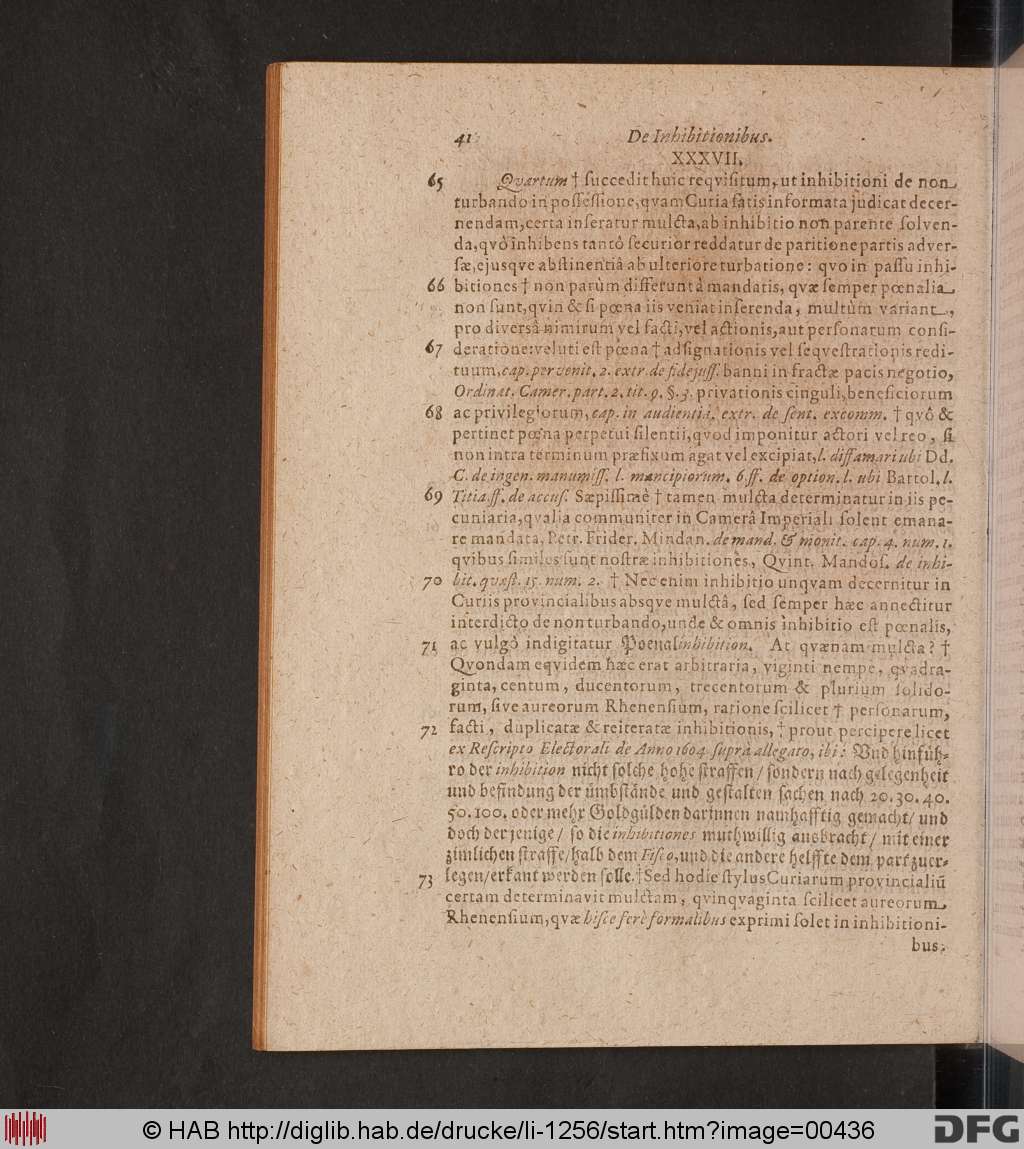 41 De Inhibitionibus.
XXXVII.
65 Qvartum † ſuccedit huic reqviſitum, ut inhibitioni de non
turbando in poſſeſſione, qvam Curia ſatis informata judicat decer-
nendam, certa inſeratur mulcta, ab inhibitio non parente ſolven-
da, qvò inhibens tantô ſecurior reddatur de paritione partis adver-
ſæ, ejusqve abſtinentiâ ab ulteriore turbatione: qvo in paſſu inhi-
66 bitiones † non parùm differunt â mandatis, qvæ ſemper pœnalia
non ſunt, qvin & ſi pœna iis veniat inſerenda, multùm variant,
pro diversâ nimirum vel facti, vel actionis, aut perſonarum conſi-
67 deratione: veluti eſt pœna † adſignationis vel ſeqveſtrationis redi-
tuum, cap. pervenit, 2. extr. de fidejuſſ. banni in fractæ pacis negotio,
Ordinat. Camer. part. 2. tit. 9. §. 3. privationis cinguli, beneficiorum
68 ac privilegiorum, cap. in audientiâ. extr. de ſent. excomm. † qvô &
pertinet pœna perpetui ſilentii, qvod imponitur actori vel reo, ſi
non intra terminum præfixum agat vel excipiat, l. diffamari ubi Dd.
C. de ingen. manumiſſ. l. mancipiorum. 6. ff. de option. l. ubi Bartol. l.
69 Titia ff. de accuſ. Sæpiſſimè † tamen mulcta determinatur in iis pe-
cuniaria, qvalia communiter in Camerâ Imperiali ſolent emana-
re mandata, Petr. Frider. Mindan. de mand. & monit. cap. 4. num. 1.
qvibus ſimiles ſunt noſtræ inhibitiones, Qvint. Mandoſ. de inhi-
70 bit. quæſt. 15. num. 2. † Nec enim inhibitio unqvam decernitur in
Curiis provincialibus absqve mulctâ, ſed ſemper hæc annectitur
interdicto de non turbando, unde & omnis inhibitio eſt pœnalis,
71 ac vulgò indigitatur Poenalinhibition. At qvænam mulcta? †
Qvondam eqvidem hæc erat arbitraria, viginti nempe, qvadra-
ginta, centum, ducentorum, trecentorum & plurium ſolido-
rum, ſive aureorum Rhenenſium, ratione ſcilicet † perſonarum,
72 facti, duplicatæ & reiteratæ inhibitionis, † prout percipere licet
ex Reſcripto Electorali de Anno 1604 ſuprà allegato, ibi: Und hinfüh-
ro der inhibition nicht ſolche hohe ſtraffen / ſondern nach gelegenheit
und befindung der ümbſtände und geſtalten ſachen nach 20. 30. 40.
50. 100. oder mehr Goldgülden darinnen namhafftig gemacht / und
doch der jenige / ſo die inhibitiones muthwillig ausbracht / mit einer
zimlichen ſtraffe / halb dem Fiſco, und die andere helffte dem part zuer-
73 legen / erkant werden ſolle. † Sed hodie ſtylus Curiarum provincialiũ
certam determinavit mulctam, qvinqvaginta ſcilicet aureorum
Rhenenſium, qvæ hiſce ferè formalibus exprimi ſolet in inhibitioni-
bus.
© HAB http://diglib.hab.de/drucke/li-1256/start.htm?image=00436
DFG